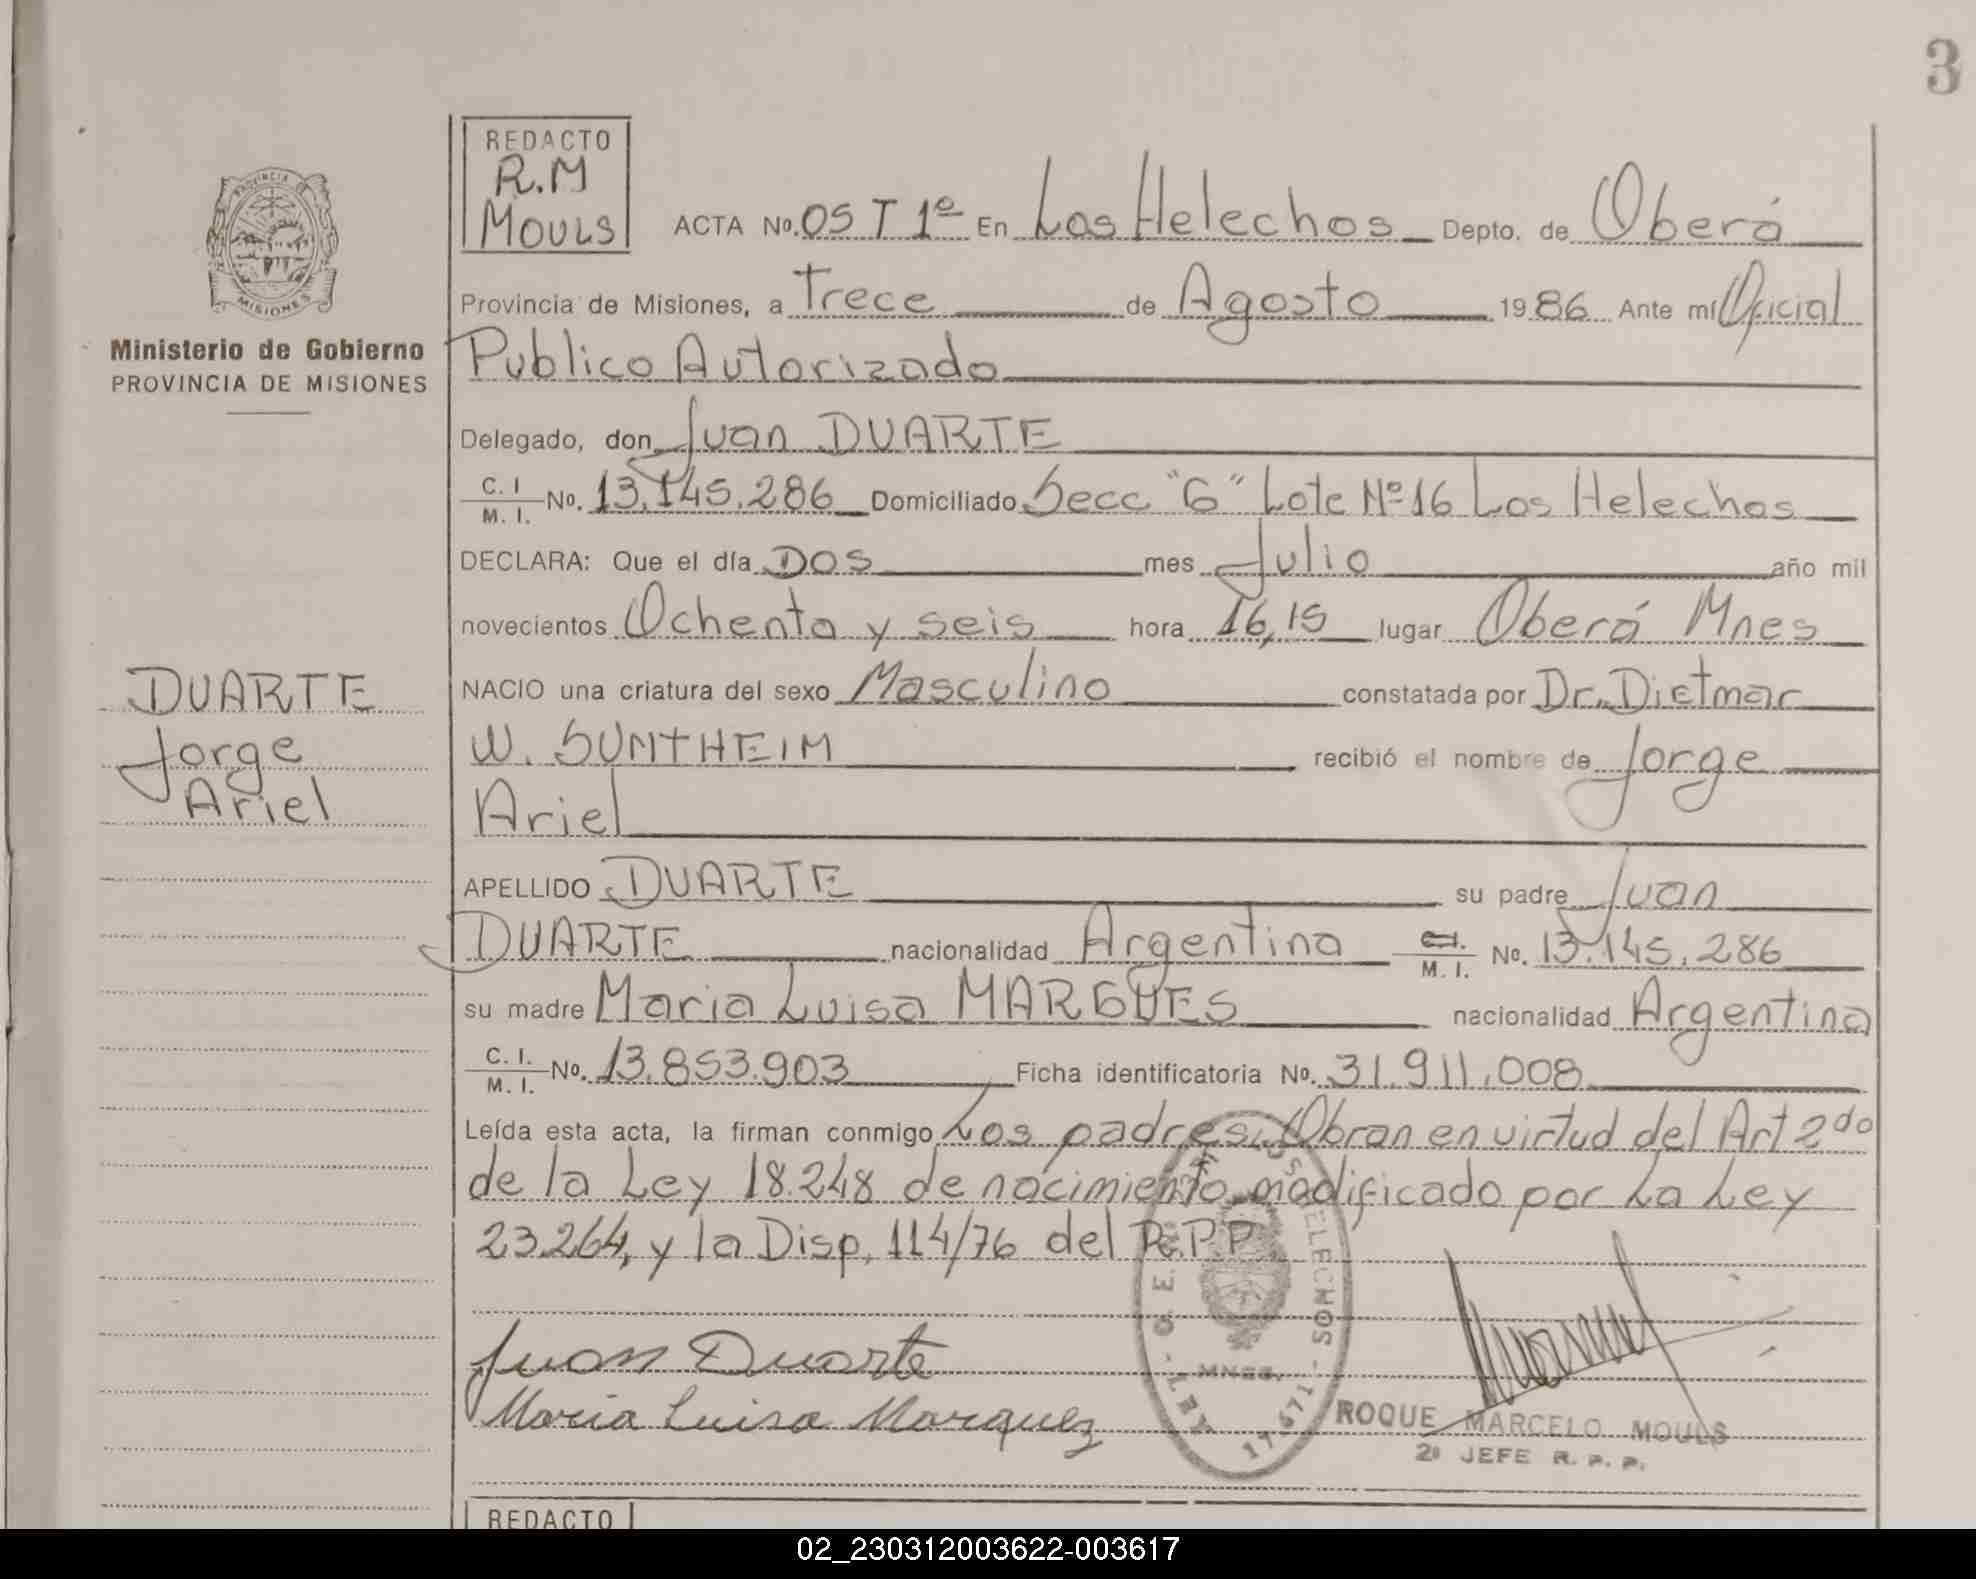 3
REDACTO
R.M
MOULS
ACTA No. 05 T 1º En Los Helechos Depto. de Oberá
Provincia de Misiones, a Trece de Agosto 1986 Ante mí Oficial
Publico Autorizado
Delegado, don Juan DUARTE
C. I
M. I. No. 13.145.286 Domiciliado Secc "6" Lote Nº 16 Los Helechos
DECLARA: Que el día DOS mes Julio año mil
novecientos Ochenta y seis hora 16,15 lugar Oberá Mnes
NACIO una criatura del sexo Masculino constatada por Dr. Dietmar
W. SUNTHEIM recibió el nombre de Jorge
Ariel
APELLIDO DUARTE su padre Juan
DUARTE nacionalidad Argentina C.I.
M. I. No. 13.145.286
su madre Maria Luisa MARGUES nacionalidad Argentina
C. I.
M. I. No. 13.853.903 Ficha identificatoria No. 31.911.008
Leída esta acta, la firman conmigo Los padres. Obran en virtud del Art 2do
de la Ley 18.248 de nacimiento modificado por La Ley
23.264, y la Disp. 114/76 del R.P.P.
Juan Duarte
Maria Luisa Marquez
ROQUE MARCELO MOULS
2º JEFE R. P. P.
HELECHOS - LEY 17671
MNES.
PROVINCIA DE
MISIONES
Ministerio de Gobierno
PROVINCIA DE MISIONES
DUARTE
Jorge
Ariel
REDACTO
02_230312003622-003617